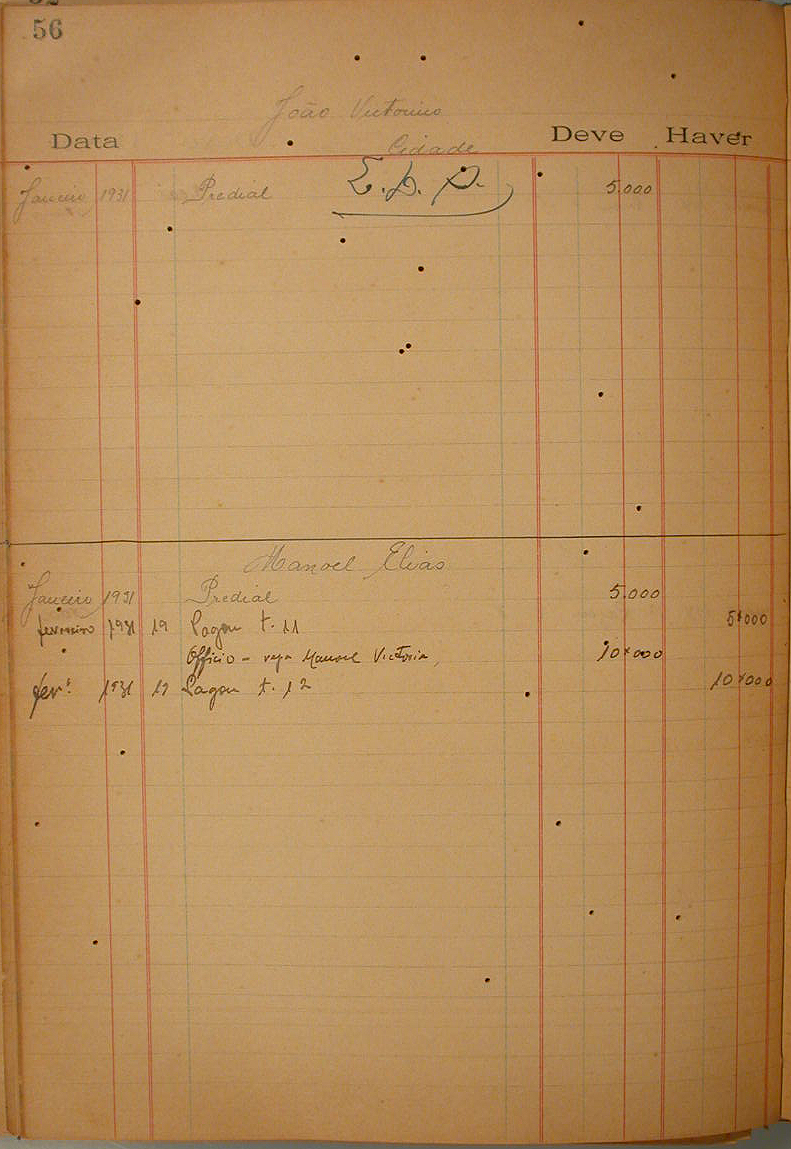 56
João Victorino
Cidade
Data Deve Haver
Janeiro 1931 Predial 5.000
Manoel Elias
Janeiro 1931 Predial 5.000
fevereiro 1931 19 Pagou t. 11 5$000
Officio - Manoel Victoria 10$000
fev.º 1931 19 Pagou t. 12 10$000